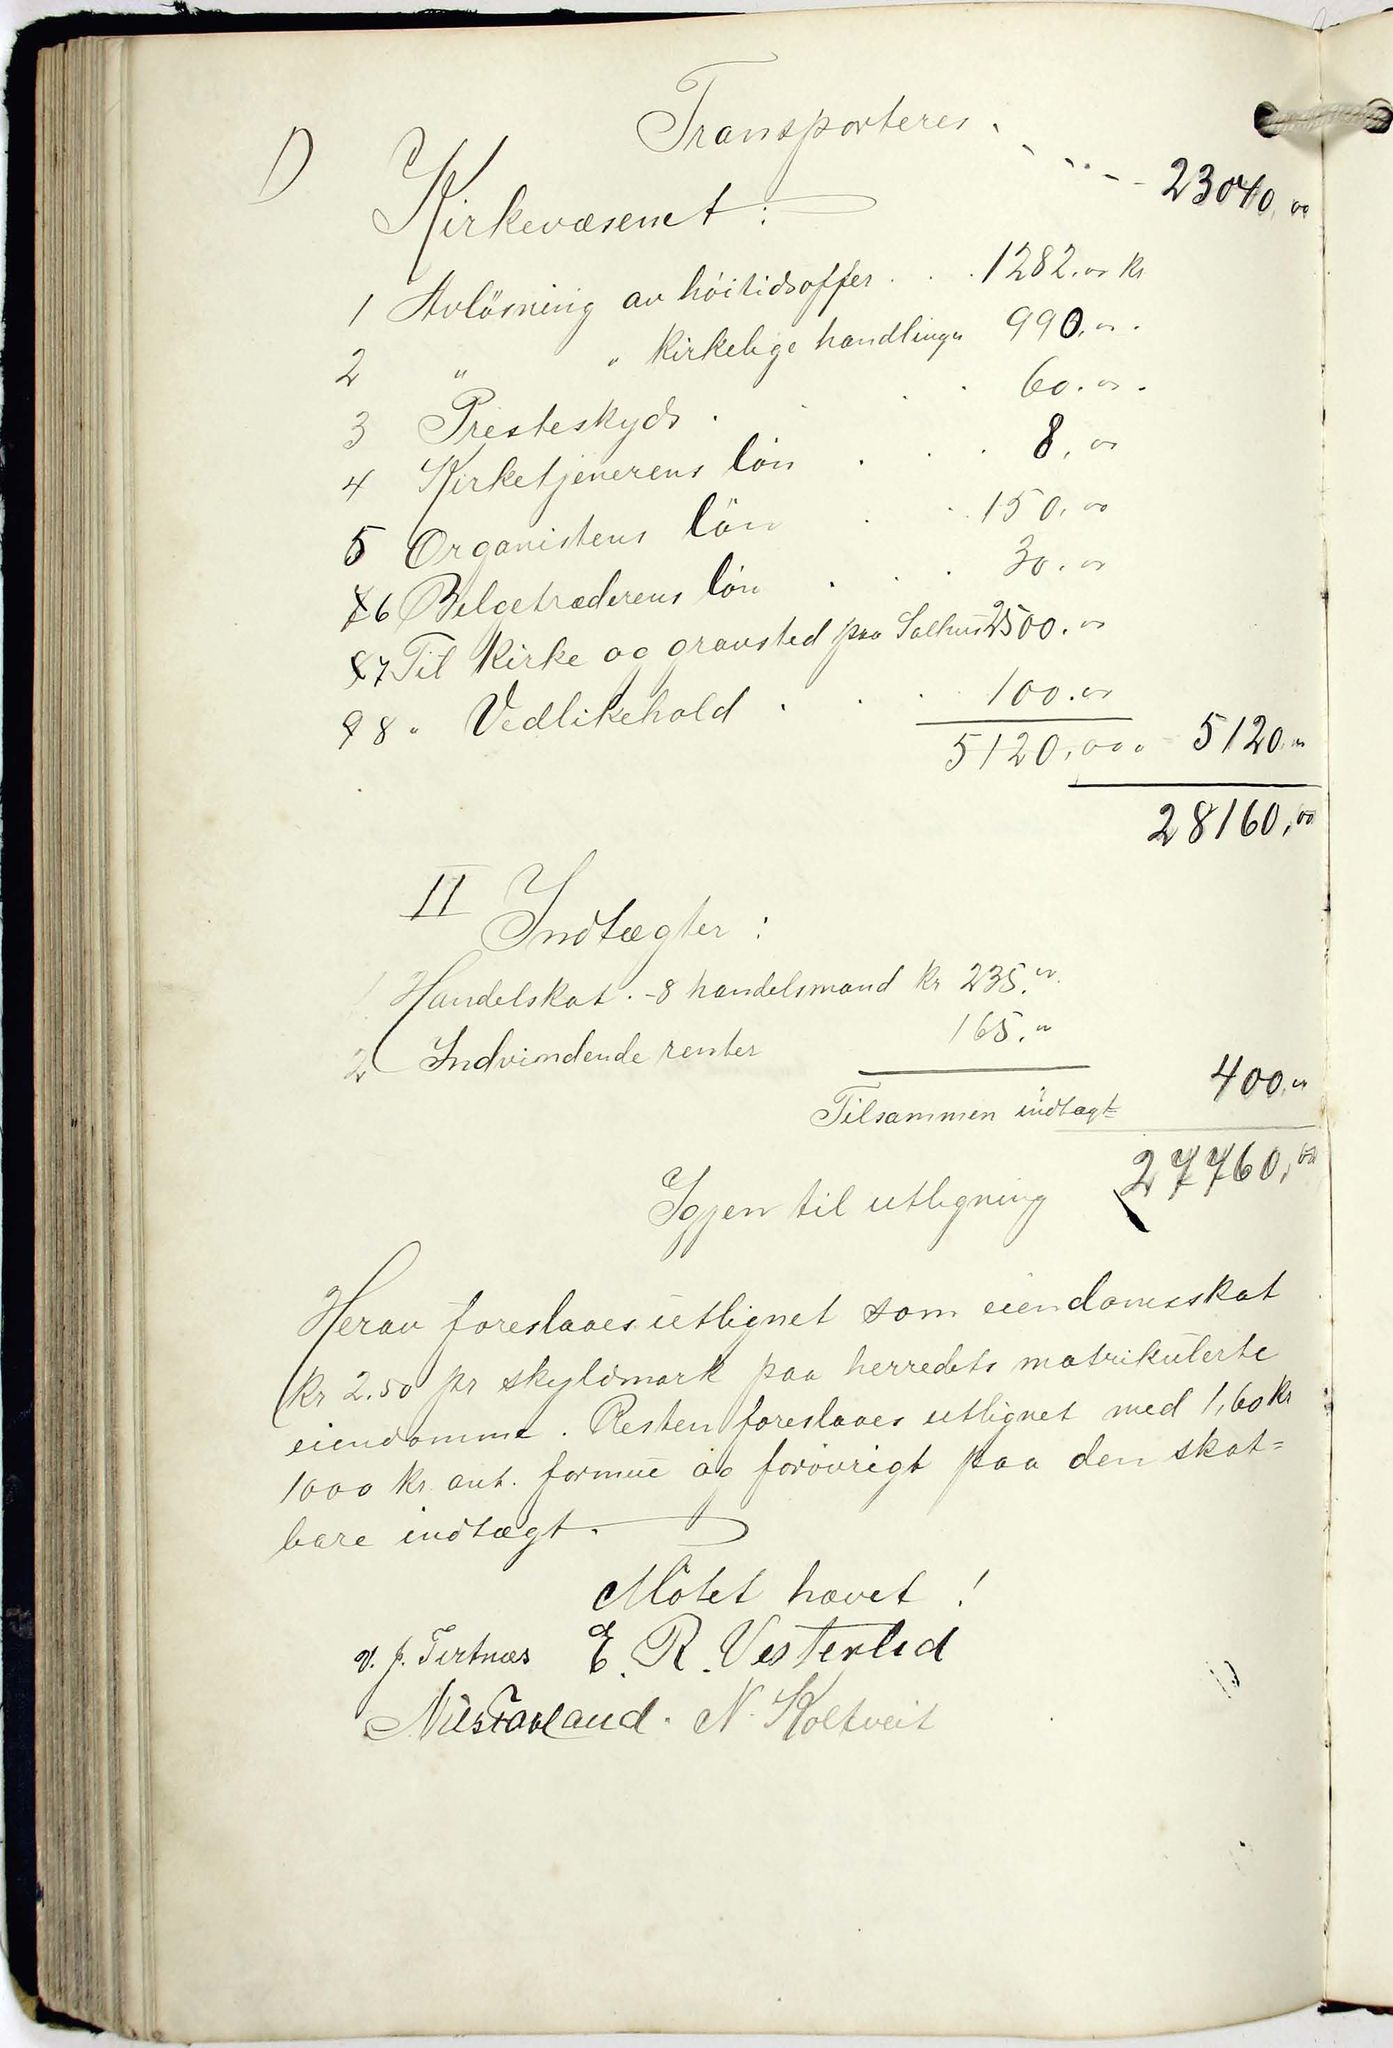 Transporteres . - - - - 23040,00
D Kirkevæsenet :
1 Avlösning av höitidsoffer . . . 1282.00 kr
2 " " kirkelige handlinger 990,00 .
3 Presteskyds . . . . 60.00 .
4 Kirketjenerens lön . . . 8,00
5 Organistens lön . . . 150,00
6 Belgetræderens lön . . . 30.00
7 Til kirke og gravsted paa Salhus 2500.00
8 " Vedlikehold . . . 100.00
5120,00 5120,00
28160,00
II Indtægter :
1 Handelskat . - 8 handelsmænd kr 235.00
2 Indvindende renter 165.00
400,00
Tilsammen indtægt
Igjen til utligning 27760,00
Herav foreslaaes utlignet som eiendomsskat
kr 2.50 pr skyldmark paa herredets matrikulerte
eiendomme . Resten foreslaaes utlignet med 1,60 kr
1000 kr ant. formue og forövrigt paa den skat=
bare indtægt .
Mötet hævet !
V. J. Tertnæs E. R. Vesterlid
Nils Tavland . N. Holtveit